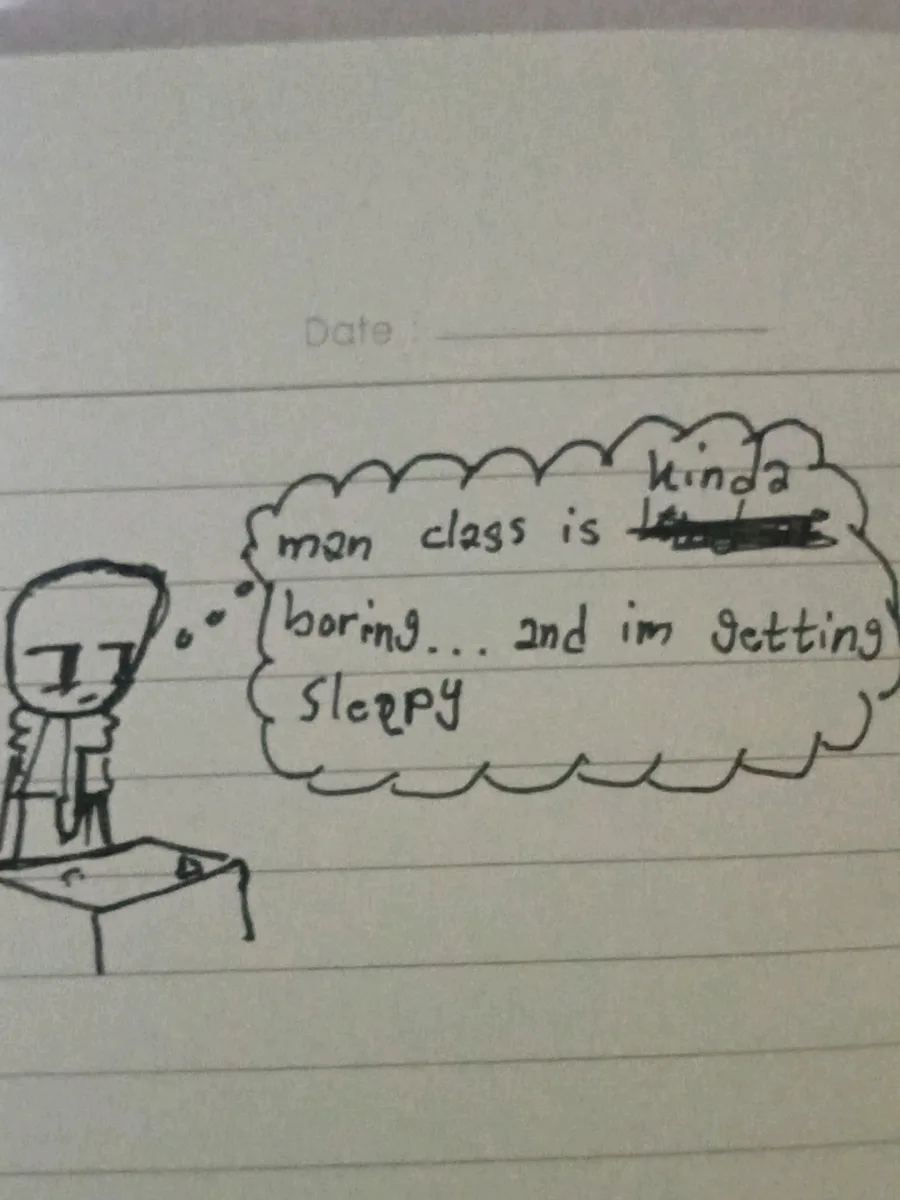 Date :
kinda
man class is
boring... and im getting
sleepy